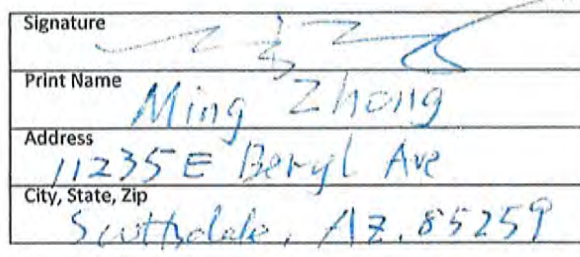 Signature
Print Name
Ming Zhong
Address
11235 E Beryl Ave
City, State, Zip
Scottsdale, AZ. 85259